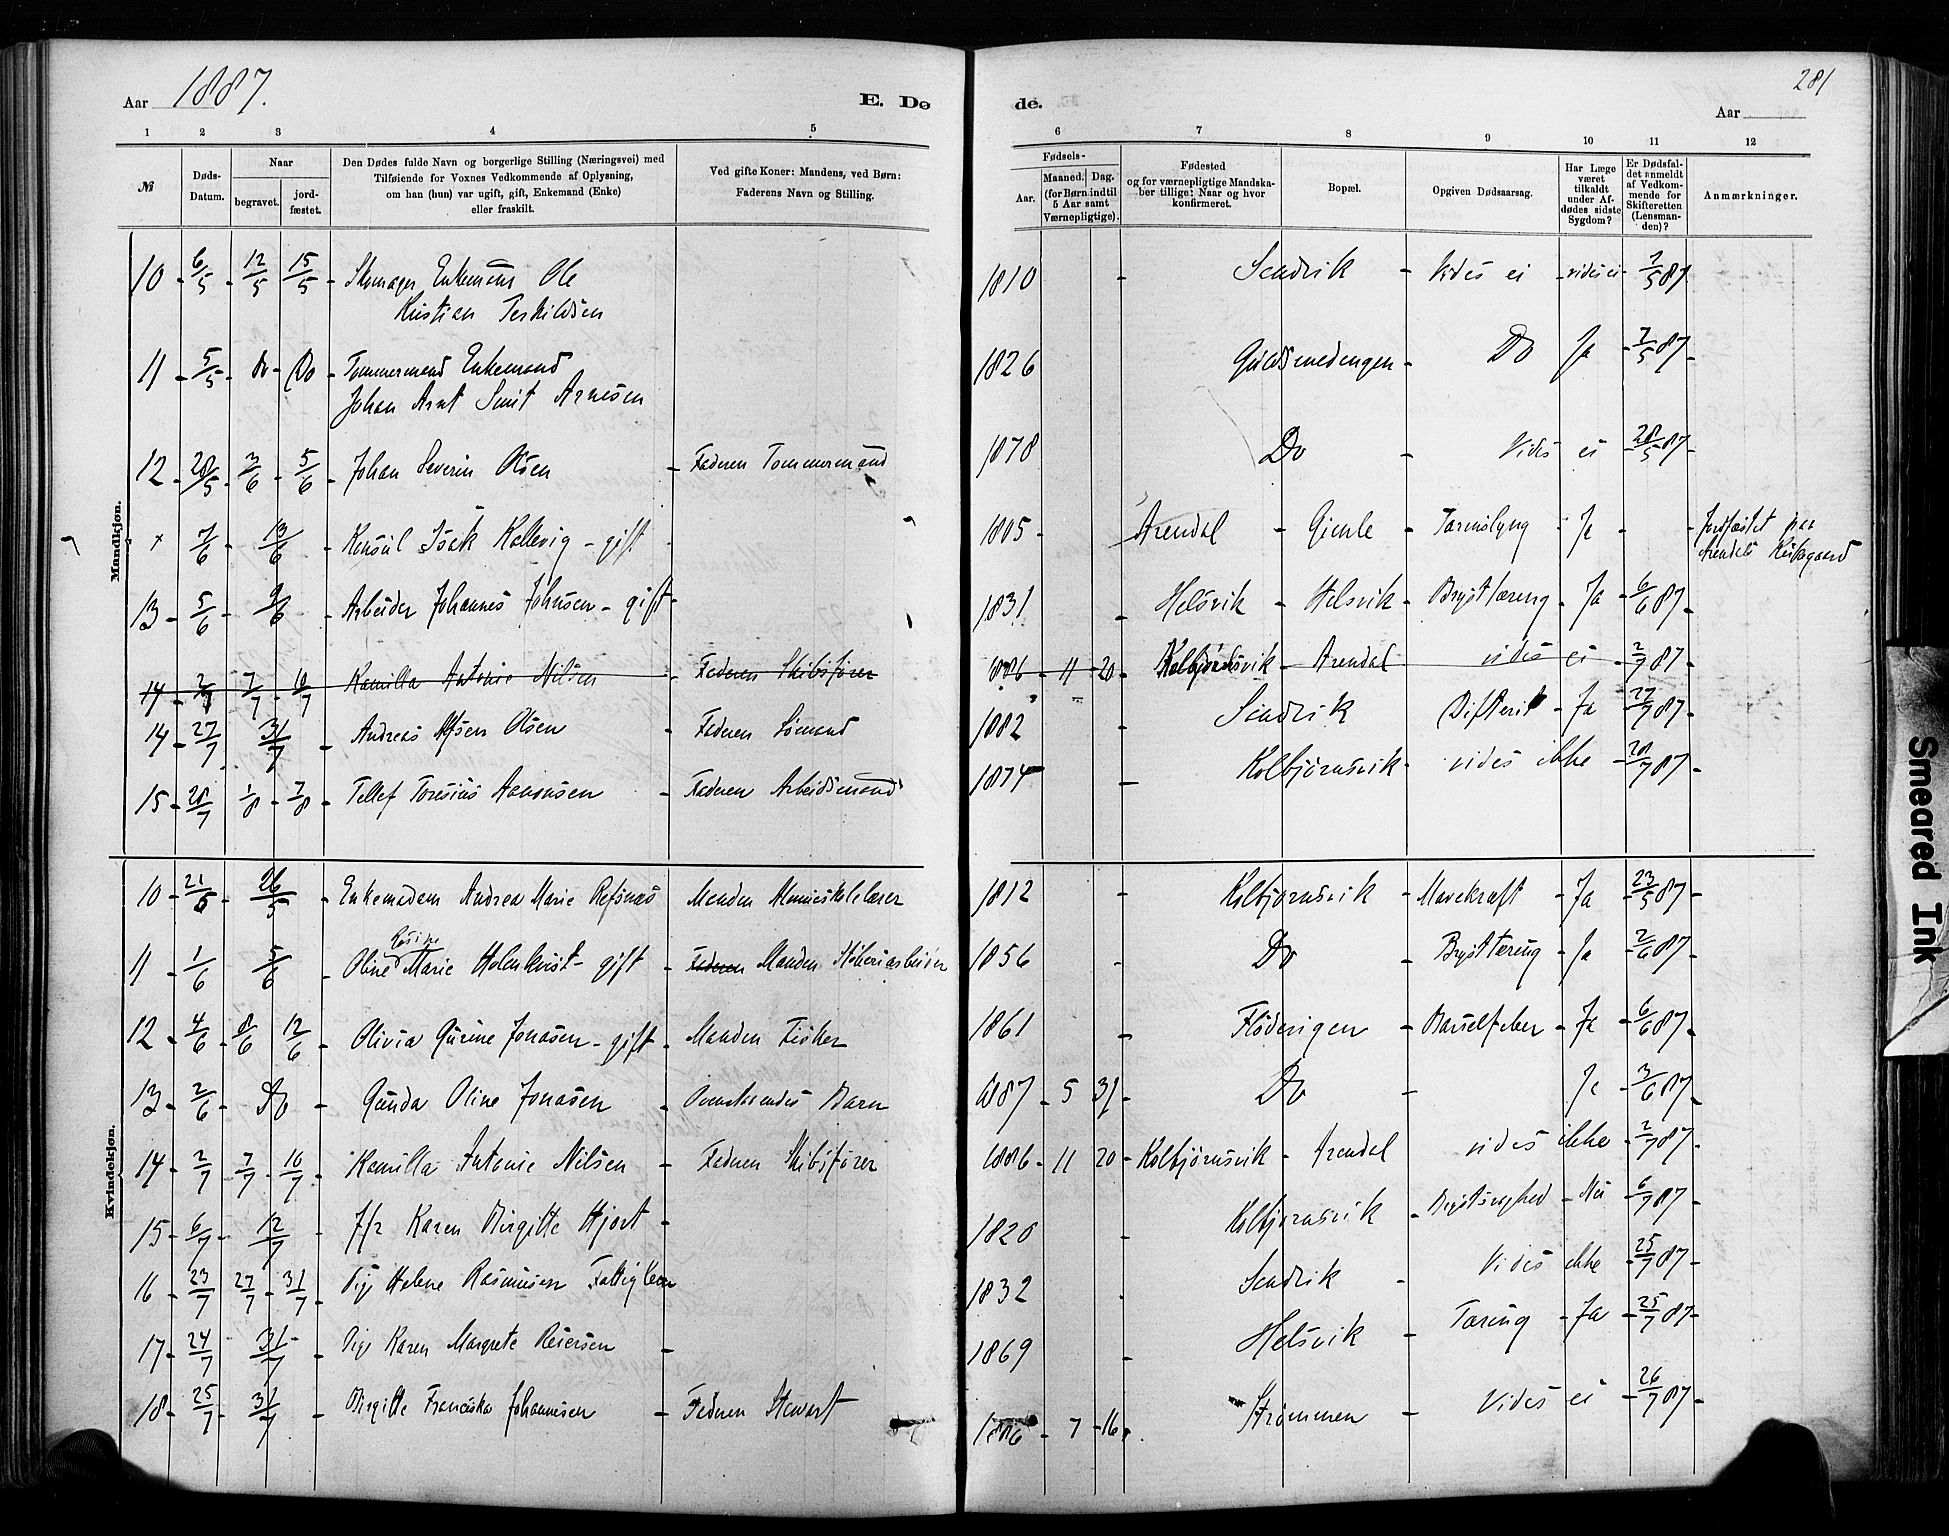 Aar 1887.
E. Dø
de.
281
Aar
1 2 3 4 5
6 7 8 9 10 11 12
№
Døds-
Datum.
Naar
begravet.
jord-
fæstet.
Den Dødes fulde Navn og borgerlige Stilling (Næringsvei) med
Tilføiende for Voxnes Vedkommende af Oplysning,
om han (hun) var ugift, gift, Enkemand (Enke)
eller fraskilt.
Ved gifte Koner: Mandens, ved Børn:
Faderens Navn og Stilling.
Fødsels-
Aar.
Maaned. Dag.
(for Børn indtil
5 Aar samt
Værnepligtige).
Fødested
og for værnepligtige Mandska-
ber tillige: Naar og hvor
konfirmeret.
Bopæl.
Opgiven Dødsaarsag.
Har Læge
været
tilkaldt
under Af-
dødes sidste
Sygdom?
Er Dødsfal-
det anmeldt
af Vedkom-
mende for
Skifteretten
(Lensman-
den)?
Anmærkninger.
Mandkjøn.
10 - 6/5 - 12/5 15/5 - Skomager Enkemand Ole
Kristian Terkildsen
1810 - Sandvik - Vides ei - vides ei - 7/5 87
11 - 5/5 - Do - Do - Tømmermand Enkemand
Johan Arnt Smit Arnesen
1826 Guldsmedengen - Do Ja - 7/5 87 -
12 - 28/5 3/6 - 5/6 - Johan Severin Olsen - Faderen Tømmermand 1878 Do Vides ei - 28/5 87 -
x 7/6 - 13/6 - Konsul Isak Kallevig - gift - 1805 - Arendal - Gimle - Tarmslyng - Ja - - jordfæstet paa
Arendals Kirkegaard
13 - 5/6 - 9/6 - Arbeider Johannes Johnsen - gift - 1831 - Helsvik - Helsvik - Brysttæring - Ja - 6/6 87 -
14 - 2/7 7/7 - 10/7 Kamilla Antonie Nilsen - Faderen Skibsfører 1886 - 11 - 20 - Kolbjørnsvik - Arendal vides ei - 2/7 87
14 - 27/7 31/7 - Andreas Olsen - Faderen Sømand 1882 - Sandvik Difterit - Ja - 27/7 87 -
15 - 28/7 1/8 - 7/8 - Tellef Toresius Aanonsen - Faderen Arbeidsmand 1874 - Kolbjørnsvik - vides ikke - 28/7 87 -
Kvindekjøn.
10 - 21/5 - 26/5 - Enkemadam Andrea Marie Refsnæs Manden Almueskolelærer 1812 - Kolbjørnsvik - Mavekræft - Ja - 23/5 87 -
Rosine
11 - 1/6 5/6 - Oline Marie Holmkvist - gift - Faderen Manden 1856 - Do - Brysttæring - Ja - 2/6 87 -
12 - 4/6 - 8/6 12/6 - Olivia Gurine Jonasen - gift - Manden Fisker 1861 - Flødevigen - Barselfeber - Ja - 6/6 87 -
13 - 2/6 - Do - Gunda Oline Jonasen - Ovenstaaendes Barn 1887 - 5 31 - Do - Ja - 3/6 87 -
14 - 2/7 7/7 - 10/7 - Kamilla Antonie Nilsen - Faderen Skibsfører 1886 - 11 20 - Kolbjørnsvik - Arendal vides ikke - 2/7 87 -
15 - 6/7 - 12/7 - Jfr Karen Birgitte Hjort - 1820 - Kolbjørnsvik - Brystsvaghed - Nei - 6/7 87 -
16 - 23/7 27/7 - 31/7 - Pige Helene Rasmusen Fattiglem 1832 - Sandvik - Vides ikke - 25/7 87 -
17 - 24/7 31/7 - Pige Karen Margrete Reiersen - 1869 - Helsvik - Tæring - Ja - 25/7 87 -
18 - 25/7 - 31/7 - Birgitte Franciska Johannesen - Faderen Stewart 1886 - 7 - 16 - Strømmen - Vides ei - 26/7 87 -
Smeared Ink